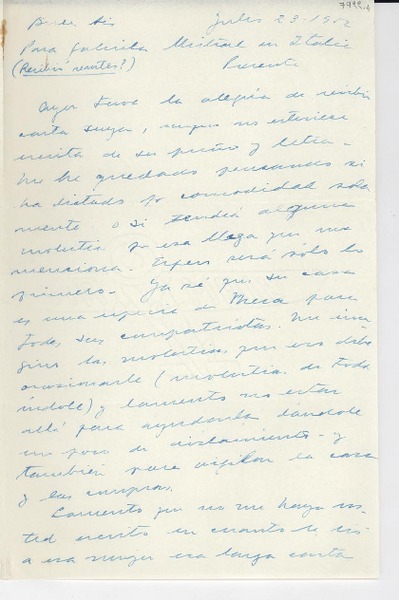 7922-4
Buenos Aires julio 23-1952
Para Gabriela Mistral en Italia
(Recibió revistas?) Presente
Ayer tuve la alegría de recibir
carta suya, aunque no estuviese
escrita de su puño y letra.
Me he quedado pensando si
ha dictado por comodidad sola
mente o si tendrá alguna
molestia por esa llaga que me
menciona. Espero será sólo lo
primero. Ya sé que su casa
es una especie de Meca para
todos sus compatriotas. Me ima
gino las molestias que eso debe
ocasionarle (molestias de toda
índole) y lamento no estar
allá para ayudarla dándole
un poco de aislamiento - y
también para vigilar la casa
y las compras.
Lamento que no me haya us-
ted escrito en cuanto le dió
a esa mujer esa larga carta